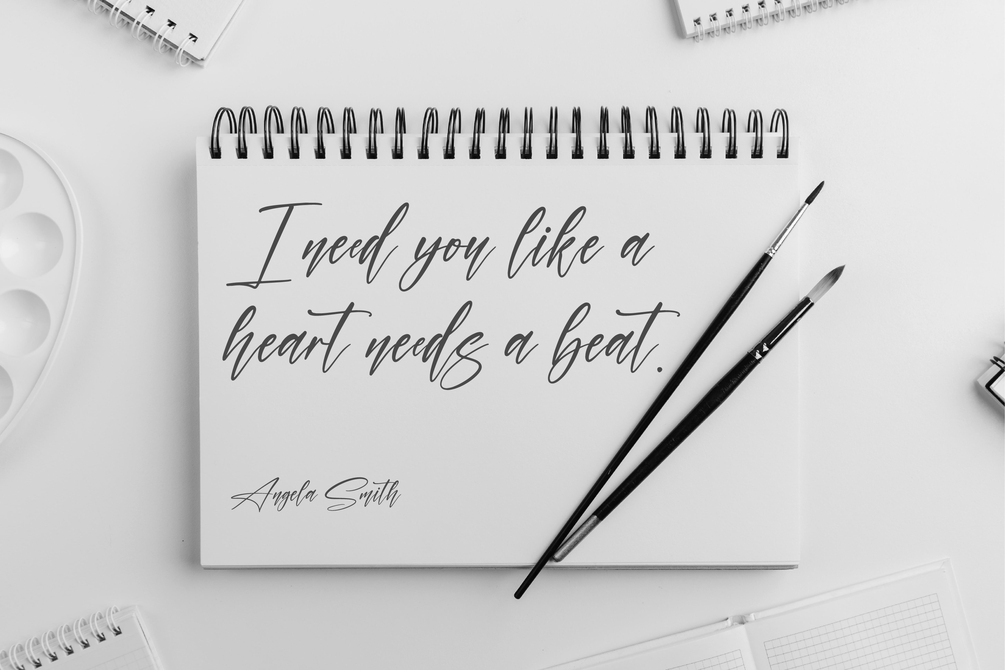 I need you like a
heart needs a beat.
Angela Smith